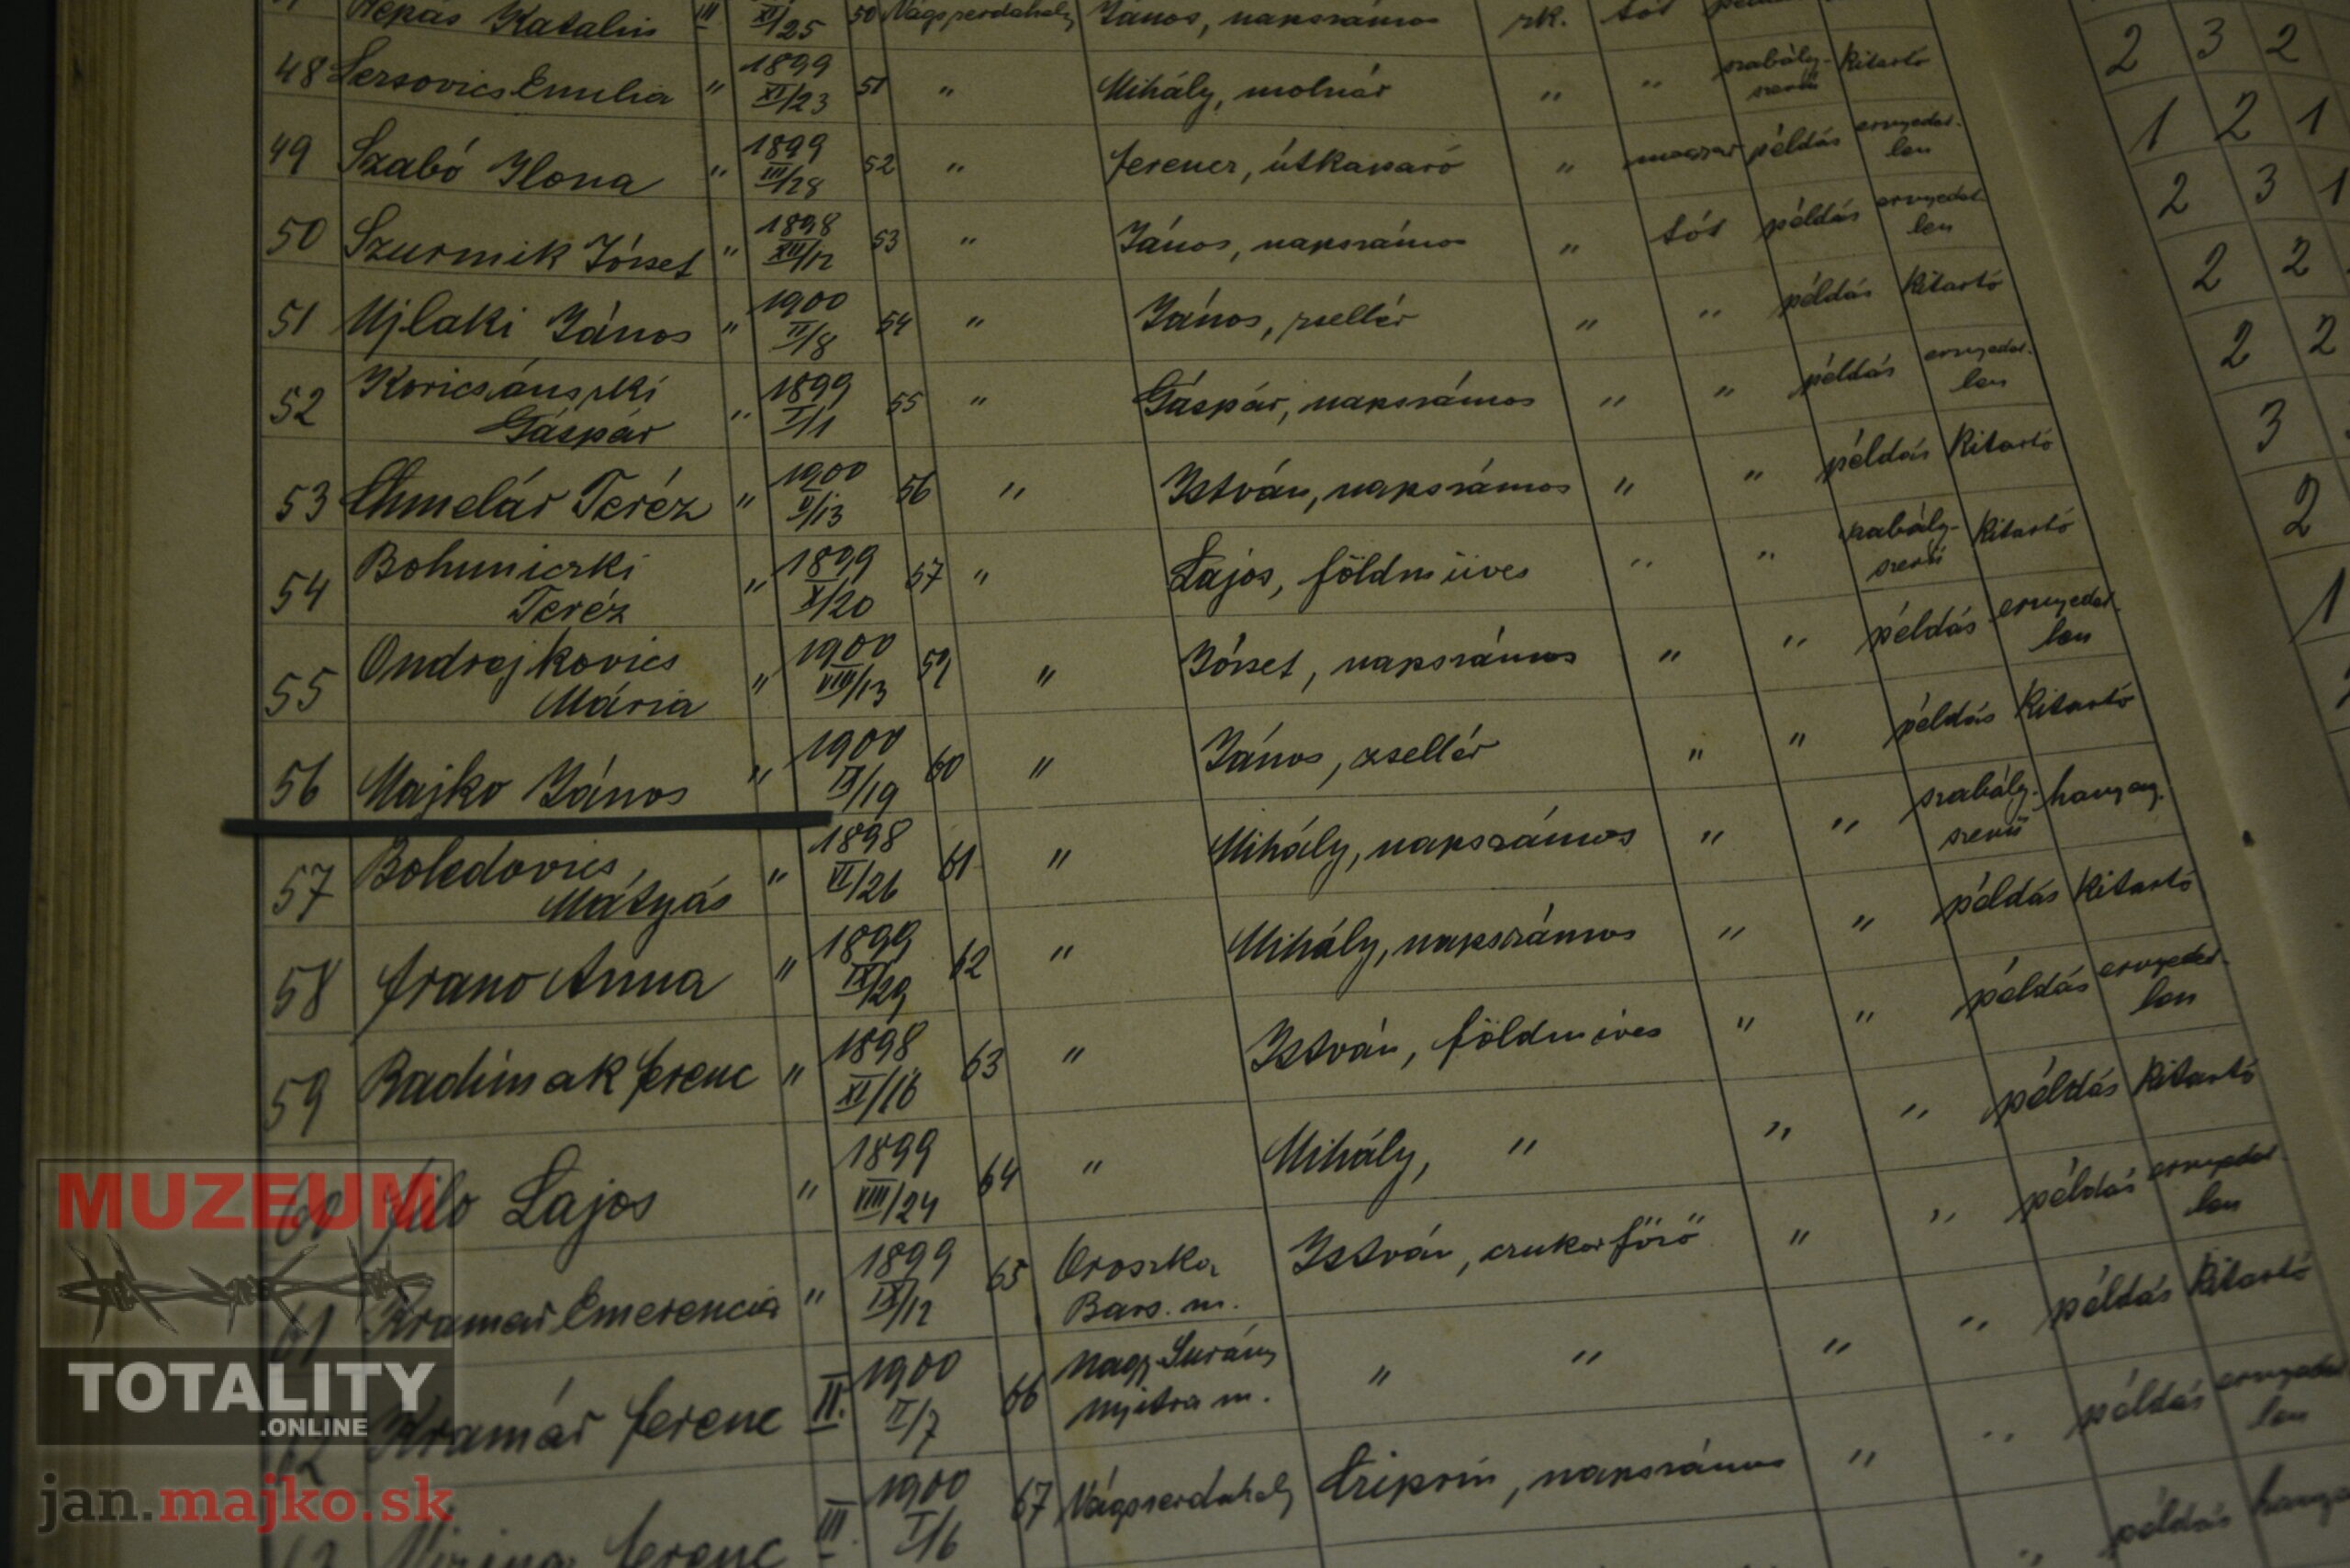 Repás Katalin III XI/25 50 Vágszerdahely János, napszámos rk. tót
48 Sersovics Emilia " 1899 XI/23 51 " Mihály, molnár " " szabály-szerű kitartó 2 3 2
49 Szabó Ilona " 1899 III/28 52 " ferencz, útkaparó " magyar példás ernyedet-len 1 2 1
50 Szurmik József " 1898 XII/12 53 " János, napszámos " tót példás ernyedet-len 2 3 1
51 Ujlaki János " 1900 II/8 54 " János, zsellér " " példás kitartó 2 2
52 Koricsánszki Gáspár " 1899 I/1 55 " Gáspár, napszámos " " példás ernyedet-len 2 2
53 Chmelár Teréz " 1900 II/13 56 " István, napszámos " " példás kitartó 3
54 Bohuniczki Teréz " 1899 X/20 57 " Lajos, földmüves " " szabály-szerű kitartó 2
55 Ondrejkovics Mária " 1900 VIII/13 59 " József, napszámos " " példás ernyedet-len 1
56 Majko János " 1900 IX/19 60 " János, zsellér " " példás kitartó
57 Boledovics Mátyás " 1898 VI/26 61 " Mihály, napszámos " " szabály-szerű hanyag
58 frano Anna " 1899 IX/29 62 " Mihály, napszámos " " példás kitartó
59 Radimak ferenc " 1898 XI/16 63 " István, földmives " " példás ernyedet-len
60 filo Lajos " 1899 VIII/24 64 " Mihály, " " " példás kitartó
61 Kramar Emerencia " 1899 IX/12 65 Oroszka Bars. m. István, czukorfőző " " példás ernyedet-len
62 Kramár ferenc II. 1900 II/7 66 Nagy Surány Nyitra m. " " " " példás kitartó
ferenc III. 1900 I/6 67 Vágszerdahely napszámos " " példás ernyedet-len
példás
MUZEUM
TOTALITY
.ONLINE
jan.majko.sk